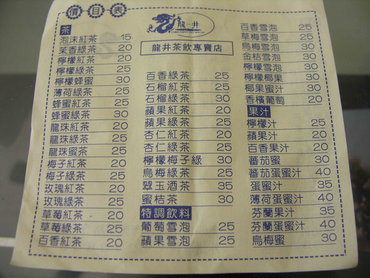 價目表
龍井
龍井茶飲專賣店
茶
泡沫紅茶 15
茉香綠茶 20
檸檬紅茶 20
檸檬綠茶 25
檸檬蜂蜜 30
薄荷綠茶 25
蜂蜜紅茶 20
蜂蜜綠茶 30
龍珠紅茶 20
龍珠綠茶 25
梅子紅茶 20
梅子綠茶 25
玫瑰紅茶 20
玫瑰綠茶 25
草莓紅茶 20
草莓綠茶 25
百香紅茶 20
百香綠茶 25
石榴紅茶 20
石榴綠茶 25
蘋果紅茶 20
蘋果綠茶 25
杏仁紅茶 20
杏仁綠茶 25
檸檬梅子綠 30
烏梅綠茶 25
翠玉酒茶 35
蜜桔茶 30
特調飲料
葡萄雪泡 25
蘋果雪泡 25
百香雪泡 25
草梅雪泡 25
烏梅雪泡 25
金桔雪泡 30
檸檬雪泡 30
檸檬椰果 35
椰果蜜汁 30
香檳葡萄 20
果汁
檸檬汁 25
蘋果汁 20
百香果汁 20
蕃茄蜜 30
蕃茄蜜汁 40
蛋蜜汁 35
薄荷蛋蜜汁 40
芬蘭果汁 35
芬蘭蛋蜜汁 40
烏梅蜜 30